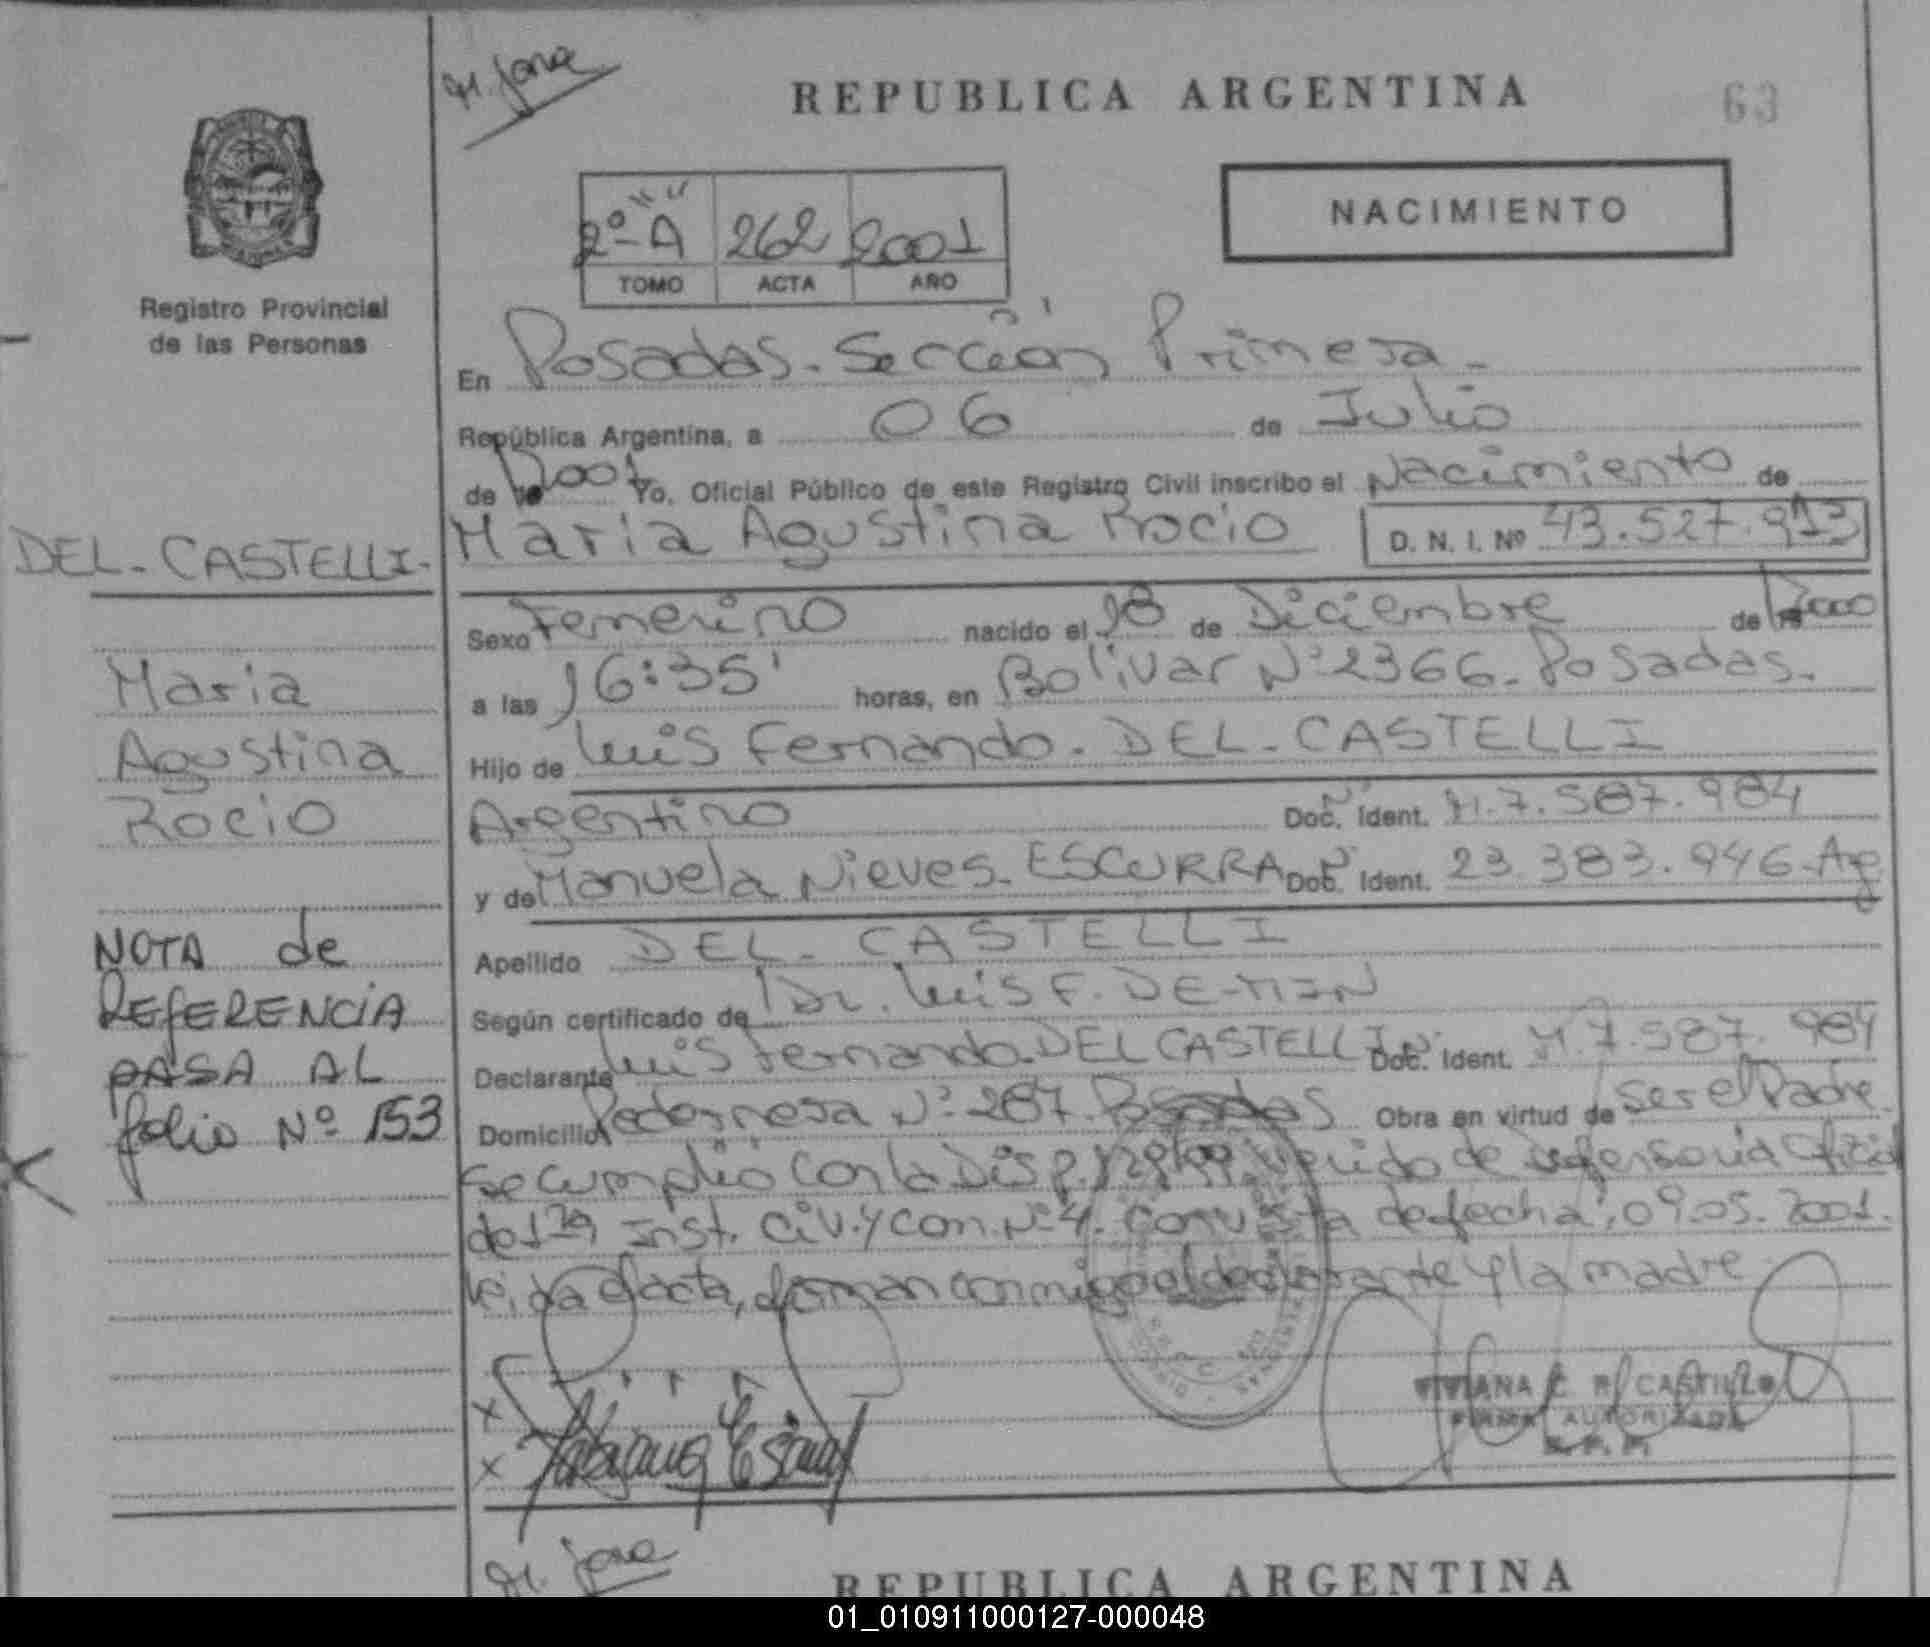 M. Jara
REPUBLICA ARGENTINA
63
Registro Provincial
de las Personas
2º "A" 262 2001
TOMO ACTA AÑO
NACIMIENTO
En Posadas. Sección Primera.
República Argentina, a 06 de Julio
de 2001 Yo, Oficial Público de este Registro Civil inscribo el Nacimiento de
DEL-CASTELLI.
Maria Agustina Rocio D. N. I. Nº 43.527.913
Sexo Femenino nacido el 18 de Diciembre de 2000
a las 16:35' horas, en Bolivar Nº 2366. Posadas.
Hijo de Luis Fernando. DEL-CASTELLI
Argentino Doc. Ident. M.7.587.984
y de Manuela Nieves. ESCURRA Doc. Ident. 23.383.946-Arg
Apellido DEL-CASTELLI
Según certificado de Dr. Luis F. DE-
Declarante Luis Fernando DEL CASTELLI Doc. Ident. M.7.587.984
Domicilio Nº 287. Posadas Obra en virtud de Ser el Padre.
Se cumplio con la Disp. de Defensoria Oficial
de 1ra Inst. Civ. y Com. Nº 4. Con vista de fecha: 09.05.2001.
Leida el acta, firman conmigo el declarante y la madre
Maria
Agustina
Rocio
NOTA de
REFERENCIA
PASA AL
folio Nº 153
X
X
VIVIANA C. R. CASTILLO
FIRMA AUTORIZADA
R. P. P.
M. Jara
REPUBLICA ARGENTINA
01_010911000127-000048